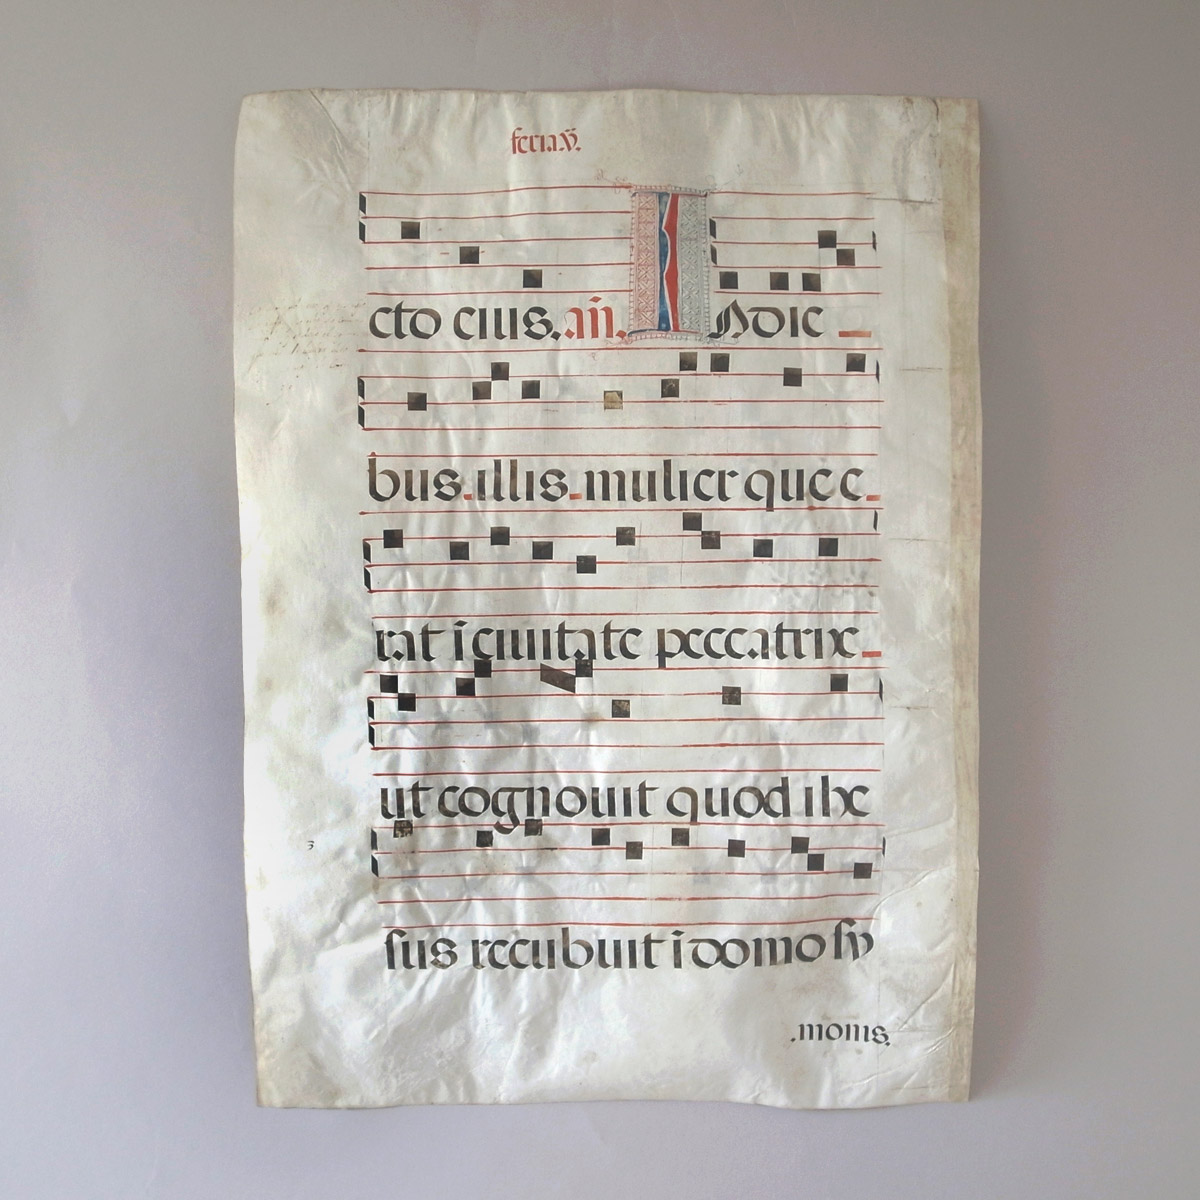 feria.v̄.
cto eius. añ. In die
bus illis mulier que e
rat ī ciuitate peccatrix
ut cognouit quod ihe
sus recubuit ī domo sy
.monis.